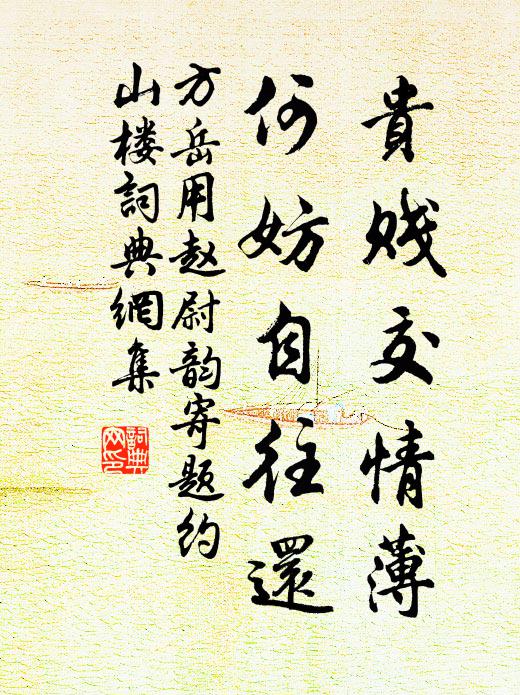 貴贱交情薄
何妨自往還
方岳用赵尉韵寄题约
山楼詞典網集
詞典